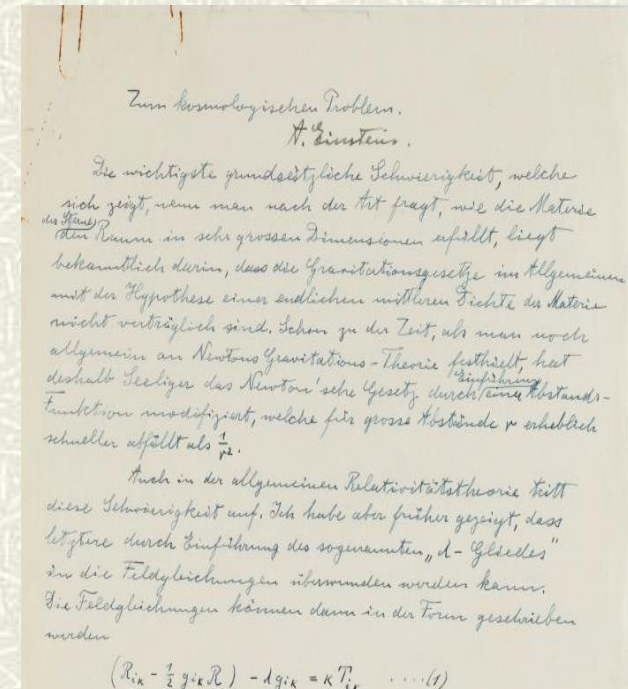 Zum kosmologischen Problem.
A. Einstein.
Die wichtigste grundsätzliche Schwierigkeit, welche
sich zeigt, wenn man nach der Art fragt, wie die Materie
den Raum in sehr grossen Dimensionen erfüllt, liegt
bekanntlich darin, dass die Gravitationsgesetze im Allgemeinen
mit der Hypothese einer endlichen mittleren Dichte der Materie
nicht verträglich sind. Schon zu der Zeit, als man noch
allgemein an Newtons Gravitations-Theorie festhielt, hat
Einführung
deshalb Seeliger das Newton'sche Gesetz durch eine Abstands-
Funktion modifiziert, welche für grosse Abstände r erheblich
schneller abfällt als 1/r².
Auch in der allgemeinen Relativitätstheorie tritt
diese Schwierigkeit auf. Ich habe aber früher gezeigt, dass
letztere durch Einführung des sogenannten „λ-Gliedes"
in die Feldgleichungen überwunden werden kann.
Die Feldgleichungen können dann in der Form geschrieben
werden
(R_ik - 1/2 g_ik R) - λg_ik = κ T_ik .....(1)